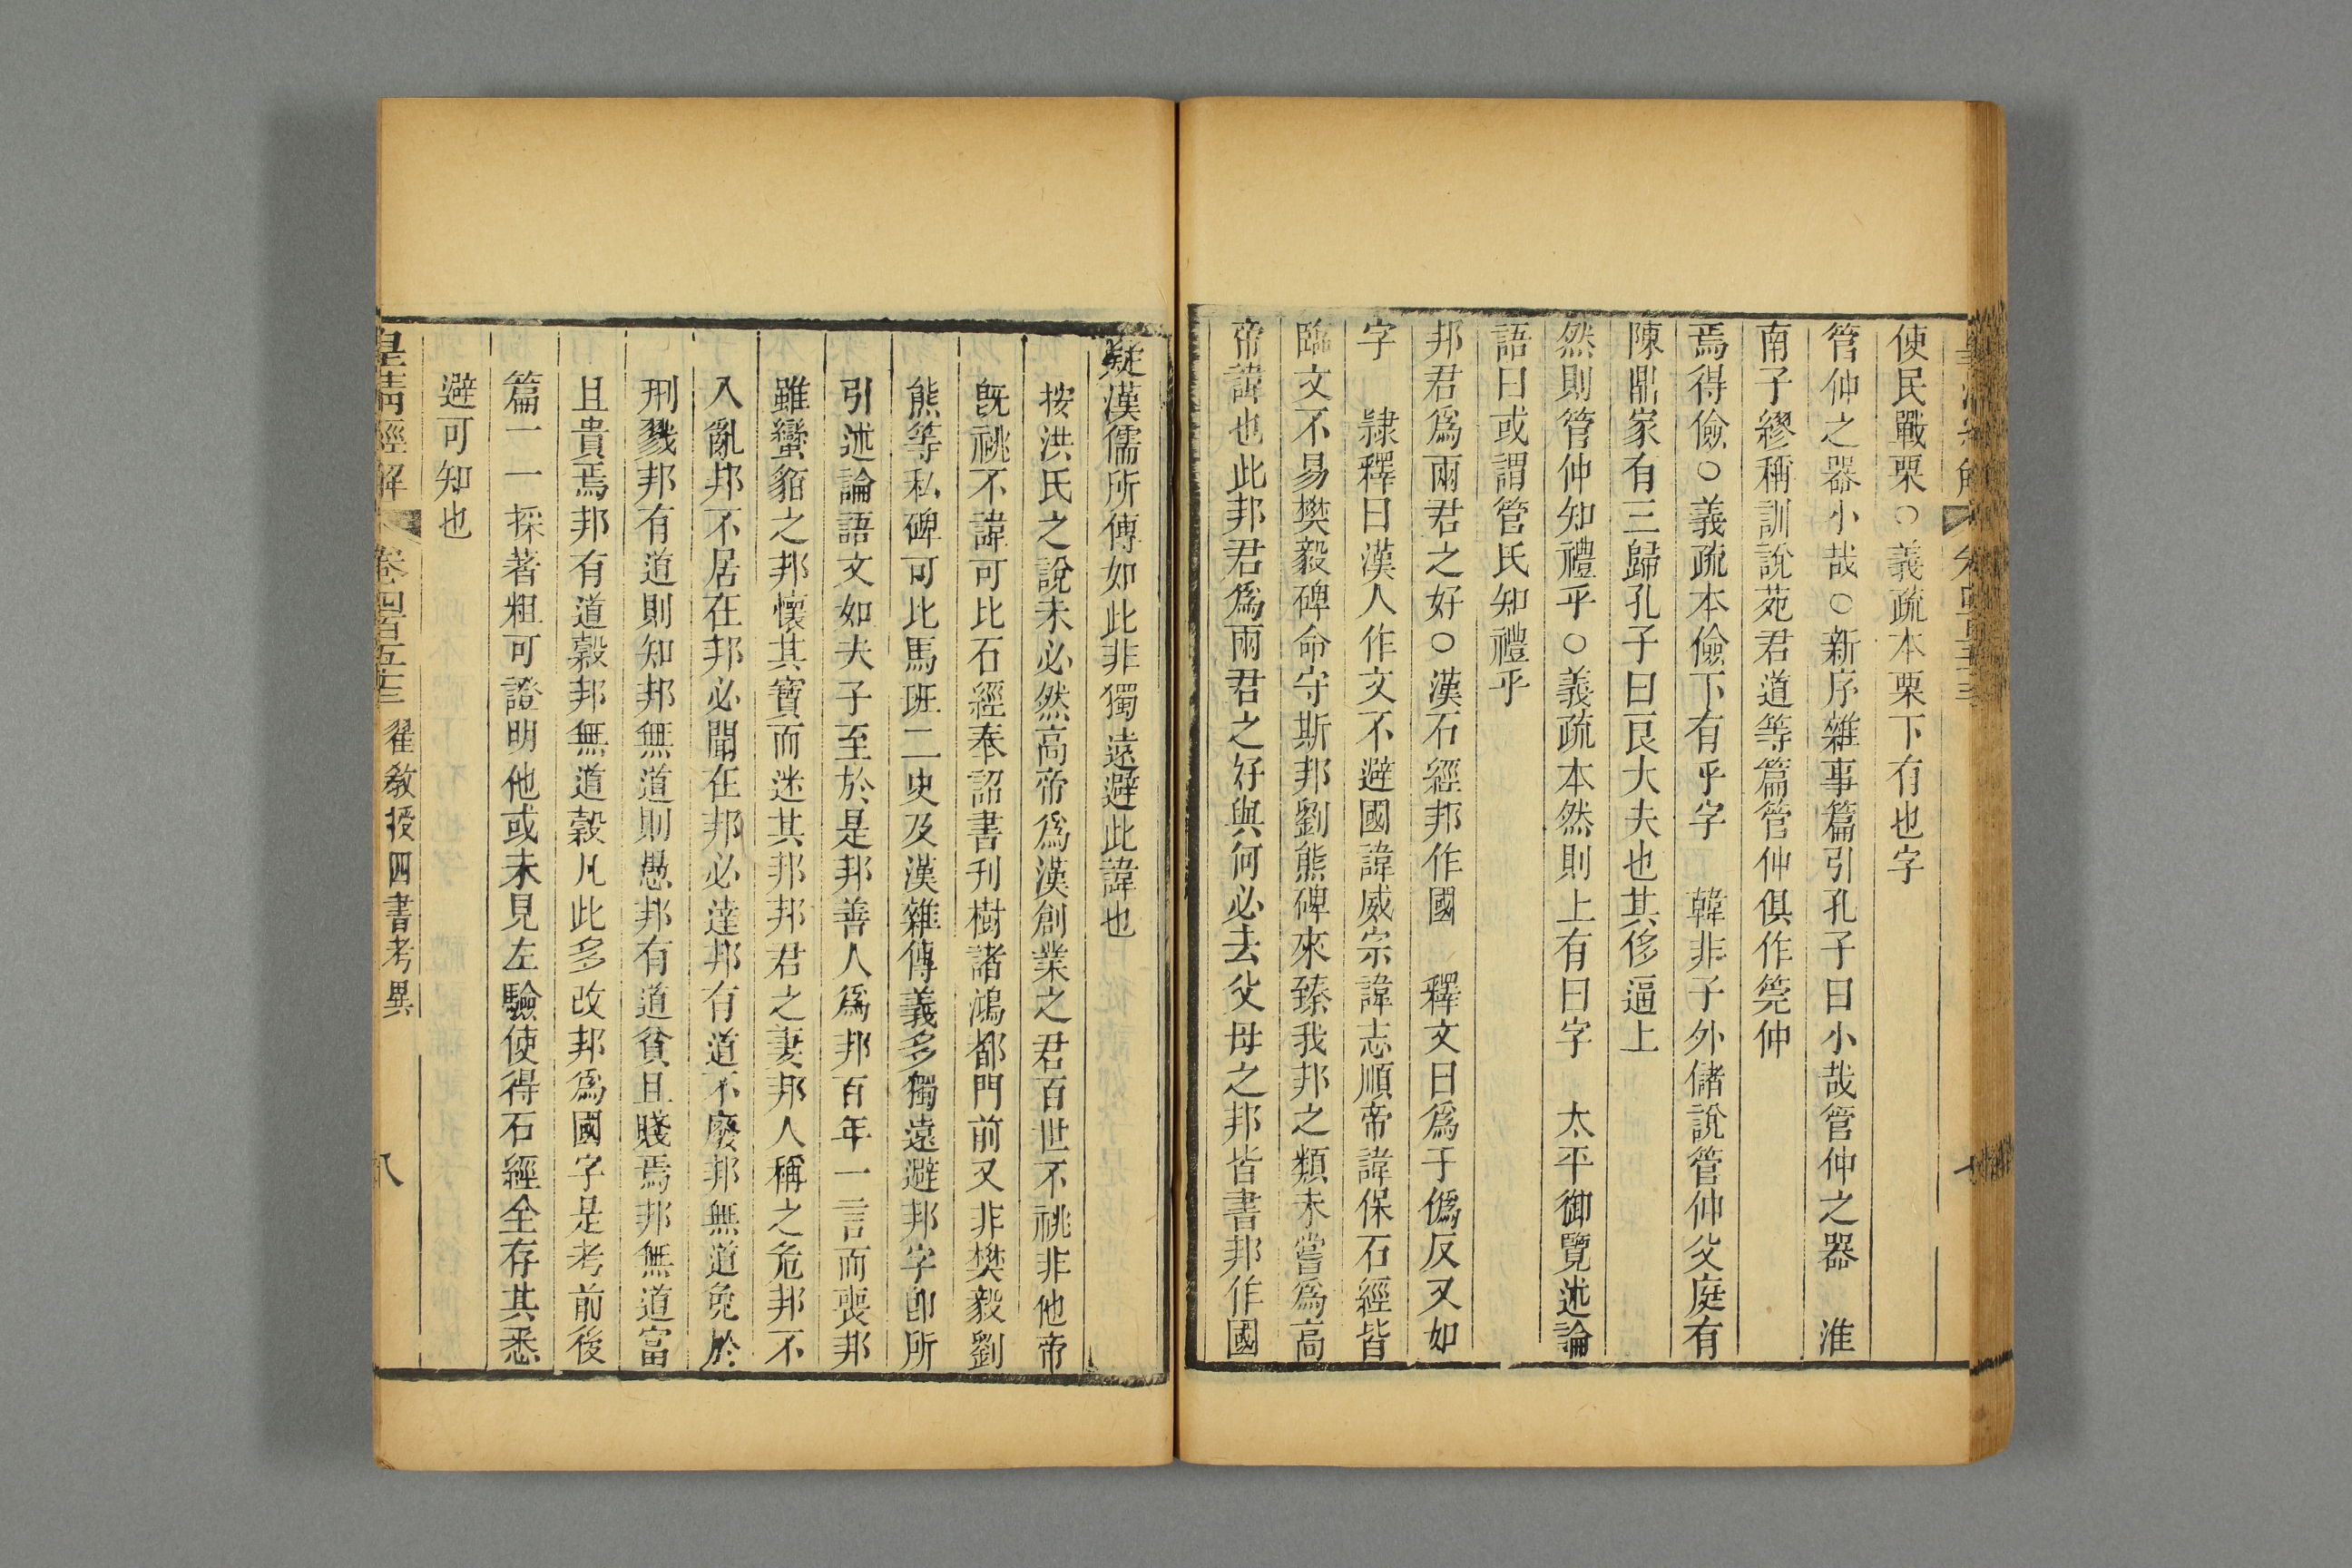 使民戰栗○義疏本栗下有也字
管仲之器小哉○新序雜事篇引孔子曰小哉管仲之器 淮
南子繆稱訓說苑君道等篇管仲俱作筦仲
焉得儉○義疏本儉下有乎字 韓非子外儲說管仲父庭有
陳鼎家有三歸孔子曰良大夫也其侈逼上
然則管仲知禮乎○義疏本然則上有曰字 太平御覽述論
語曰或謂管氏知禮乎
邦君爲兩君之好○漢石經邦作國 釋文曰爲于僞反又如
字 隷釋曰漢人作文不避國諱威宗諱志順帝諱保石經皆
臨文不易樊毅碑命守斯邦劉熊碑來臻我邦之類未嘗爲高
帝諱也此邦君爲兩君之好與何必去父母之邦皆書邦作國
疑漢儒所傳如此非獨遠避此諱也
按洪氏之說未必然高帝爲漢創業之君百世不祧非他帝
旣祧不諱可比石經奉詔書刊樹諸鴻都門前又非樊毅劉
熊等私碑可比馬班二史及漢雜傳義多獨遠避邦字卽所
引述論語文如夫子至於是邦善人爲邦百年一言而喪邦
雖蠻貊之邦懷其寶而迷其邦邦君之妻邦人稱之危邦不
入亂邦不居在邦必聞在邦必達邦有道不廢邦無道免於
刑戮邦有道則知邦無道則愚邦有道貧且賤焉邦無道富
且貴焉邦有道穀邦無道穀凡此多改邦爲國字是考前後
篇一一採著粗可證明他或未見左驗使得石經全存其悉
避可知也
皇清經解 卷四百五十三 翟教授四書考異 八